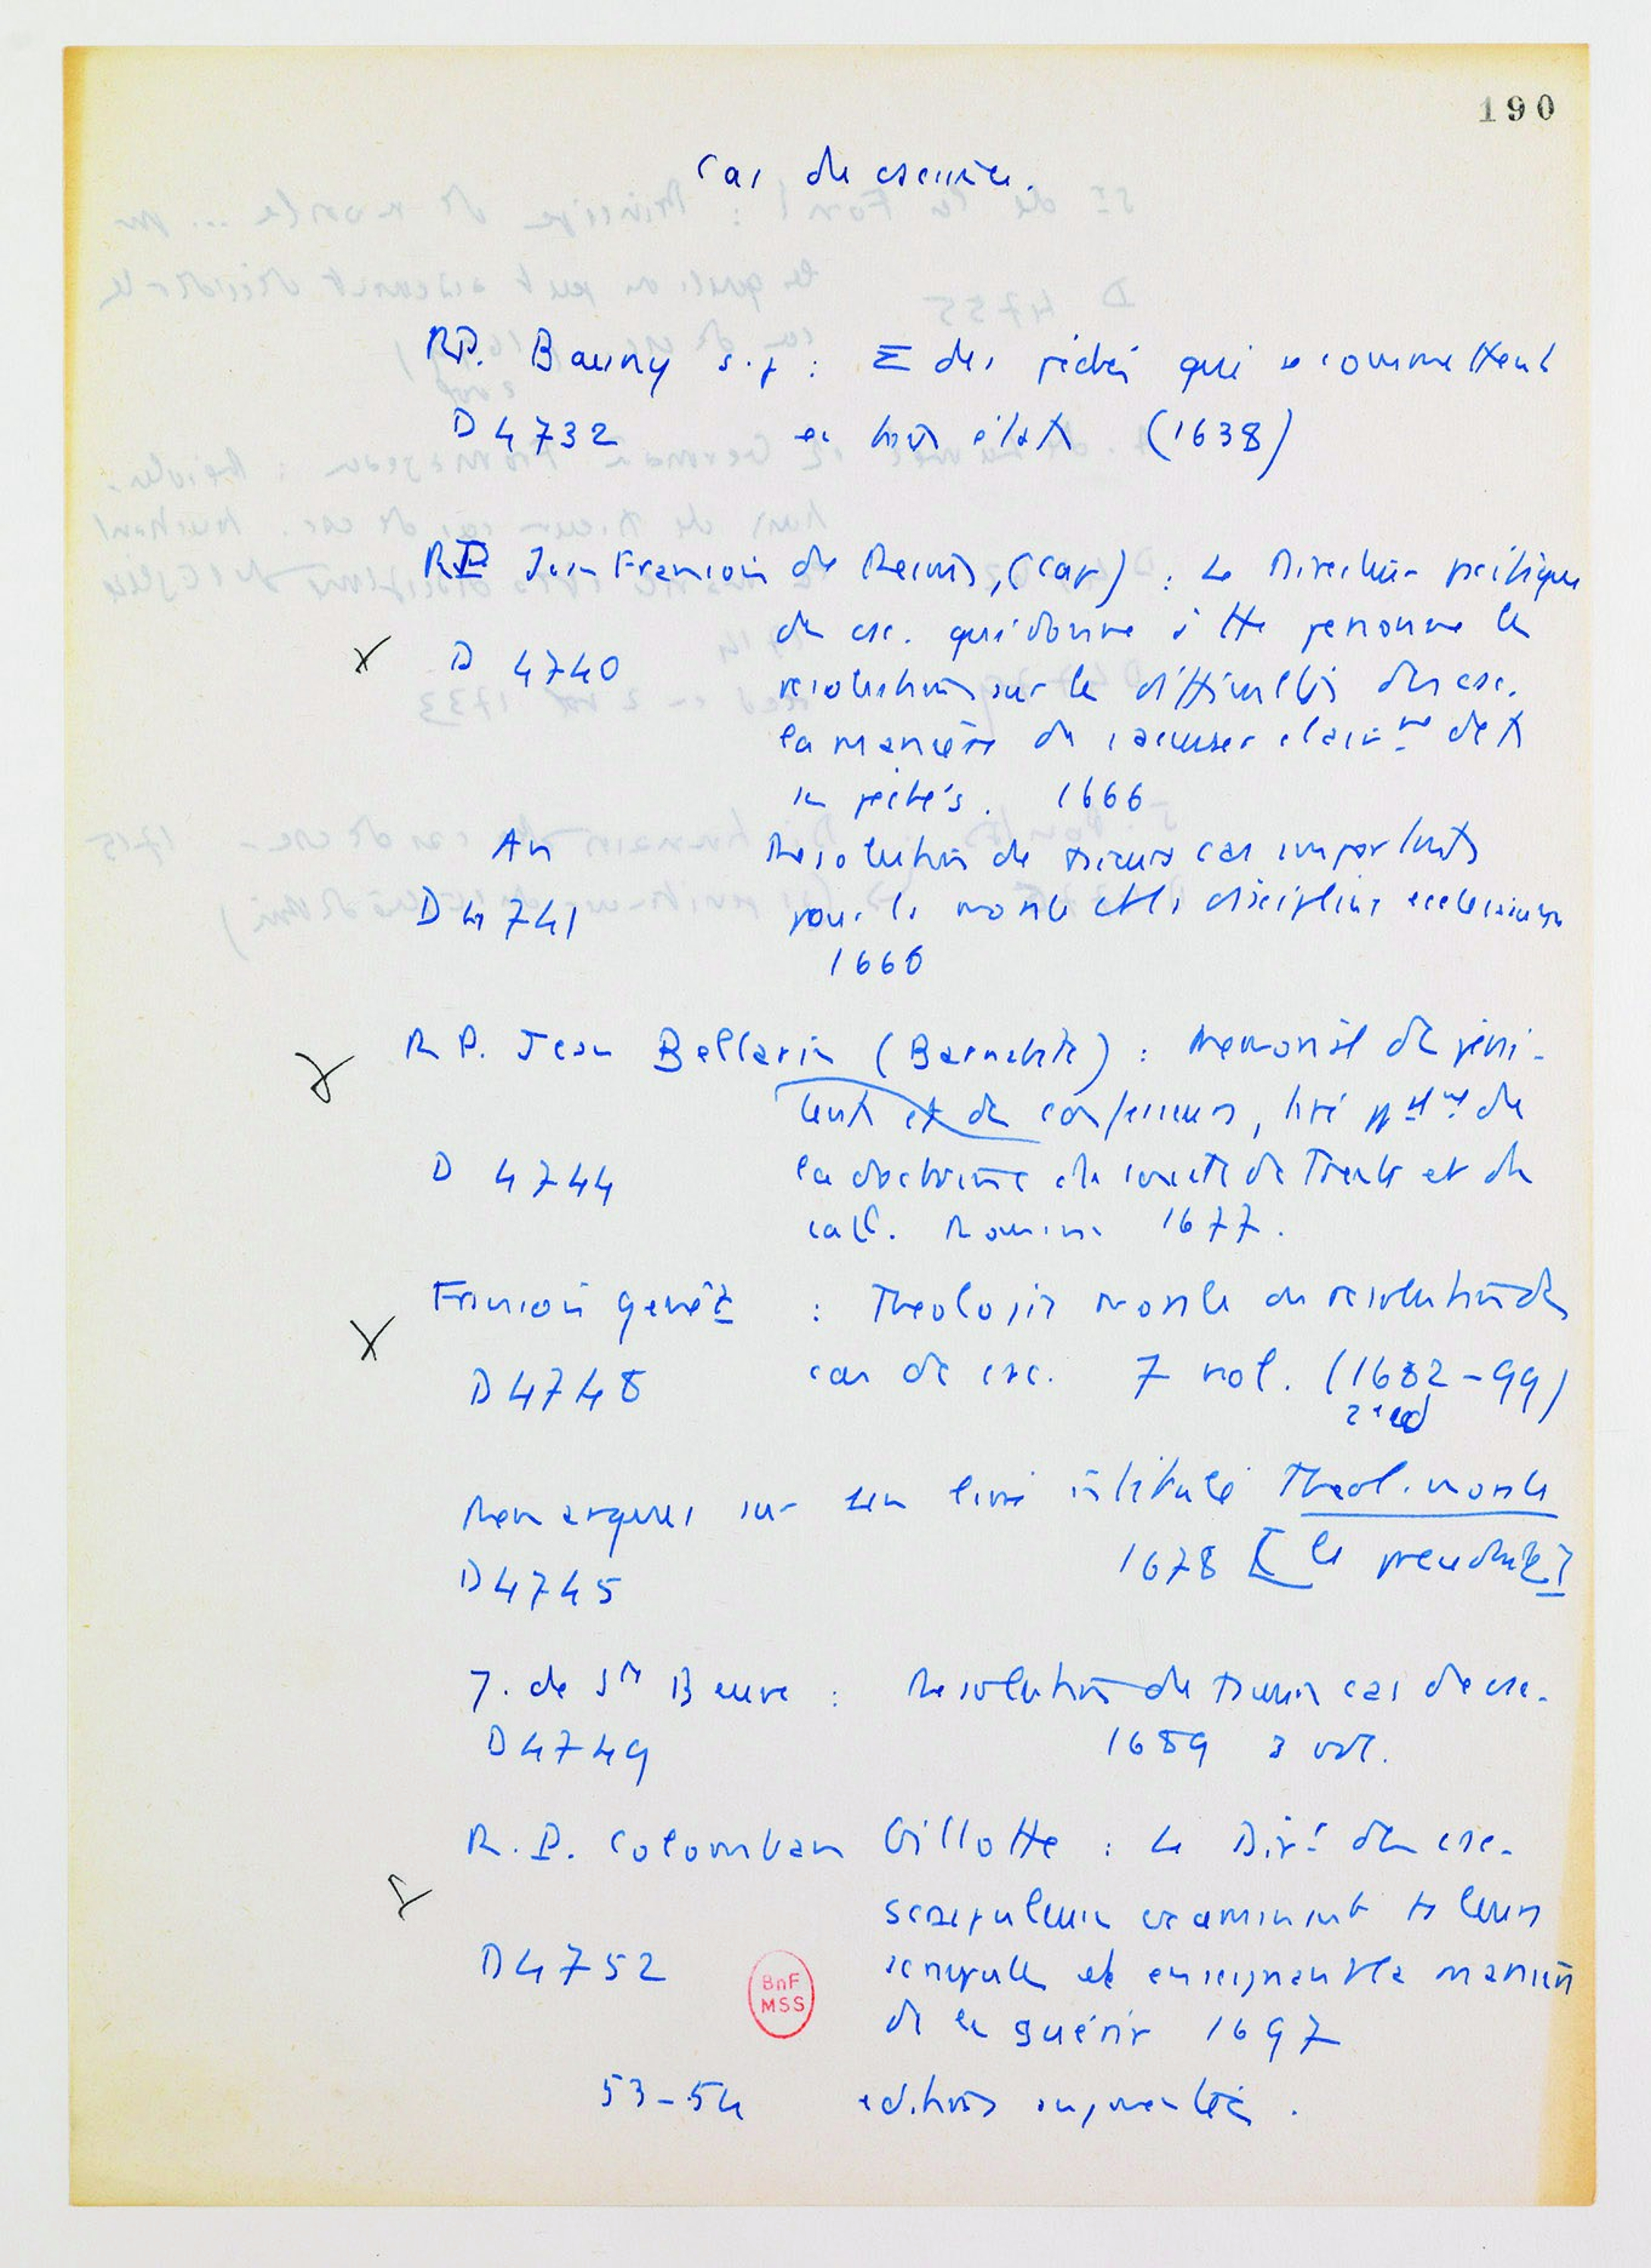 190
Cas de conscience.
RP. Bauny s.j : Σ des péchés qui se commettent
D 4732 en tous états (1638)
RP Jean François de Reims, (Cap) : Le Directeur pacifique
des csc. qui donne à tte personne les
D 4740
résolutions sur les difficultés des csc.
la manière de s'accuser clairemt de ts
ses péchés. 1666
An Resolution de plusieurs cas importants
D 4741 pour la morale et la discipline ecclésiastique
1666
R P. Jean Bellarin (Barnabite) : Memorial des péni-
tents et des confesseurs, tiré de
D 4744 la doctrine du concile de Trente et du
cat. Romain 1677.
François Genêt : Theologie morale ou résolution des
D 4748 cas de csc. 7 vol. (1682-99)
2e ed
Remarques sur un livre intitulé Theol. morale
1678
D 4745
J. de Ste Beuve : Resolution de plusieurs cas de csc.
D 4749 1689 3 vol.
R. P. Colomban Gillotte : Le Dirr des csc.
scrupuleuses examinant ts leurs
D 4752 scrupules et enseignant la manière
BnF
MSS
de les guérir 1697
53-54 editions augmentées.